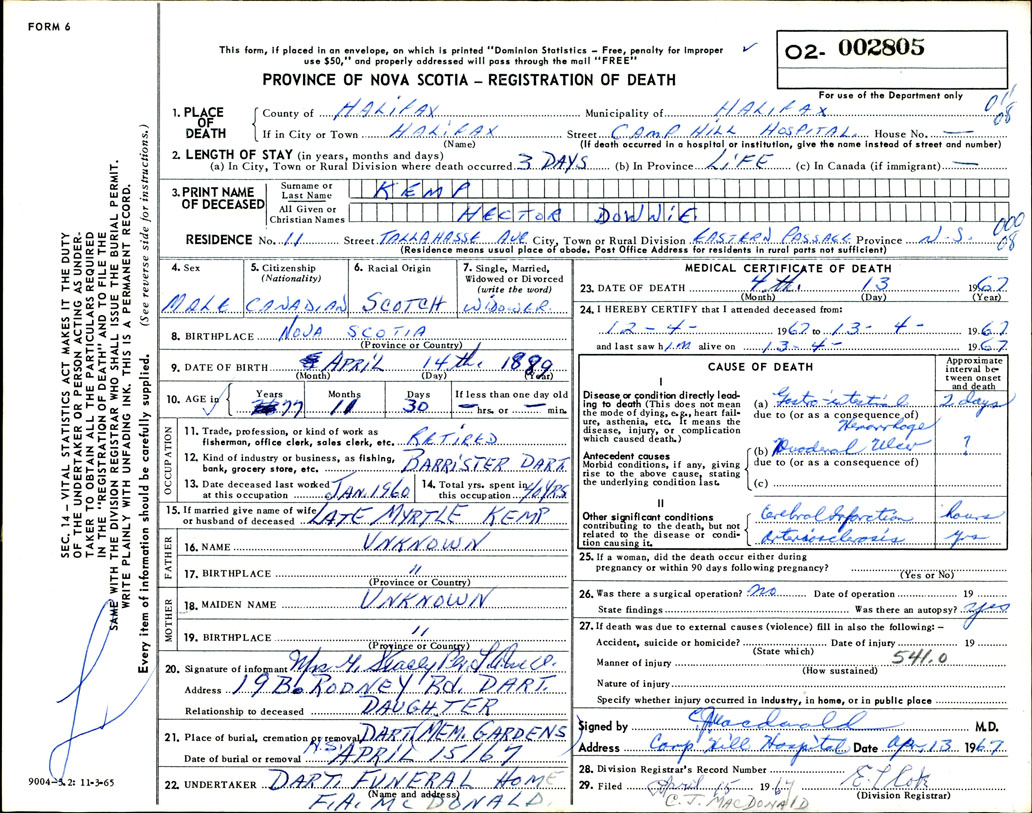 FORM 6
This form, if placed in an envelope, on which is printed "Dominion Statistics – Free, penalty for improper
use $50," and properly addressed will pass through the mail "FREE"
02- 002805
PROVINCE OF NOVA SCOTIA – REGISTRATION OF DEATH
For use of the Department only
1. PLACE OF DEATH County of HALIFAX Municipality of HALIFAX 011 08
If in City or Town HALIFAX Street CAMP HILL HOSPITAL House No. —
(Name) (If death occurred in a hospital or institution, give the name instead of street and number)
2. LENGTH OF STAY (in years, months and days)
(a) In City, Town or Rural Division where death occurred 3 DAYS (b) In Province LIFE (c) In Canada (if immigrant) —
3. PRINT NAME OF DECEASED Surname or Last Name KEMP
All Given or Christian Names HECTOR DOWNIE
000 08
RESIDENCE No. 11 Street TALLAHASSE AVE City, Town or Rural Division EASTERN PASSAGE Province N.S.
(Residence means usual place of abode. Post Office Address for residents in rural parts not sufficient)
4. Sex 5. Citizenship (Nationality) 6. Racial Origin 7. Single, Married, Widowed or Divorced (write the word)
MALE CANADIAN SCOTCH WIDOWER
8. BIRTHPLACE NOVA SCOTIA
(Province or Country)
9. DATE OF BIRTH APRIL 14 th. 1889
(Month) (Day) (Year)
10. AGE in Years Months Days If less than one day old
77 11 30 — hrs. or — min.
OCCUPATION
11. Trade, profession, or kind of work as
fisherman, office clerk, sales clerk, etc. RETIRED
12. Kind of industry or business, as fishing,
bank, grocery store, etc. BARRISTER DART.
13. Date deceased last worked
at this occupation JAN. 1960
14. Total yrs. spent in
this occupation 40 YRS.
15. If married give name of wife
or husband of deceased LATE MYRTLE KEMP
FATHER
16. NAME UNKNOWN
17. BIRTHPLACE "
(Province or Country)
MOTHER
18. MAIDEN NAME UNKNOWN
19. BIRTHPLACE "
(Province or Country)
20. Signature of informant Mrs
Address 19 B. RODNEY Rd. DART.
Relationship to deceased DAUGHTER
21. Place of burial, cremation or removal DART. MEM. GARDENS
N.S.
Date of burial or removal APRIL 15/67
22. UNDERTAKER DART. FUNERAL HOME
(Name and address)
F.A. McDONALD.
MEDICAL CERTIFICATE OF DEATH
23. DATE OF DEATH 4 th. 13 1967
(Month) (Day) (Year)
24. I HEREBY CERTIFY that I attended deceased from:
12 - 4 - 1967 to 13 - 4 - 1967
and last saw him alive on 13 - 4 - 1967.
CAUSE OF DEATH
Approximate interval between onset and death
I
Disease or condition directly leading to death (This does not mean the mode of dying, e.g., heart failure, asthenia, etc. It means the disease, injury, or complication which caused death.)
(a) Gastro-intestinal 2 days
due to (or as a consequence of)
Hemorrhage
(b) Duodenal Ulcer ?
due to (or as a consequence of)
(c)
Antecedent causes
Morbid conditions, if any, giving rise to the above cause, stating the underlying condition last.
II
Other significant conditions contributing to the death, but not related to the disease or condition causing it.
Cerebral Infarction hours
Arteriosclerosis yrs
25. If a woman, did the death occur either during
pregnancy or within 90 days following pregnancy?
(Yes or No)
26. Was there a surgical operation? no Date of operation 19
State findings Was there an autopsy? yes
27. If death was due to external causes (violence) fill in also the following: –
Accident, suicide or homicide? Date of injury 19
(State which)
Manner of injury 541.0
(How sustained)
Nature of injury
Specify whether injury occurred in industry, in home, or in public place
Signed by Macdonald M.D.
Address Camp Hill Hospital Date Apr. 13 1967
28. Division Registrar's Record Number
29. Filed April 15 1967
(Division Registrar)
C. J. MACDONALD
SEC. 14 – VITAL STATISTICS ACT MAKES IT THE DUTY
OF THE UNDERTAKER OR PERSON ACTING AS UNDER-
TAKER TO OBTAIN ALL THE PARTICULARS REQUIRED
IN THE "REGISTRATION OF DEATH" AND TO FILE THE
SAME WITH THE DIVISION REGISTRAR WHO SHALL ISSUE THE BURIAL PERMIT.
WRITE PLAINLY WITH UNFADING INK. THIS IS A PERMANENT RECORD.
Every item of information should be carefully supplied. (See reverse side for instructions.)
9004-S.2: 11-3-65